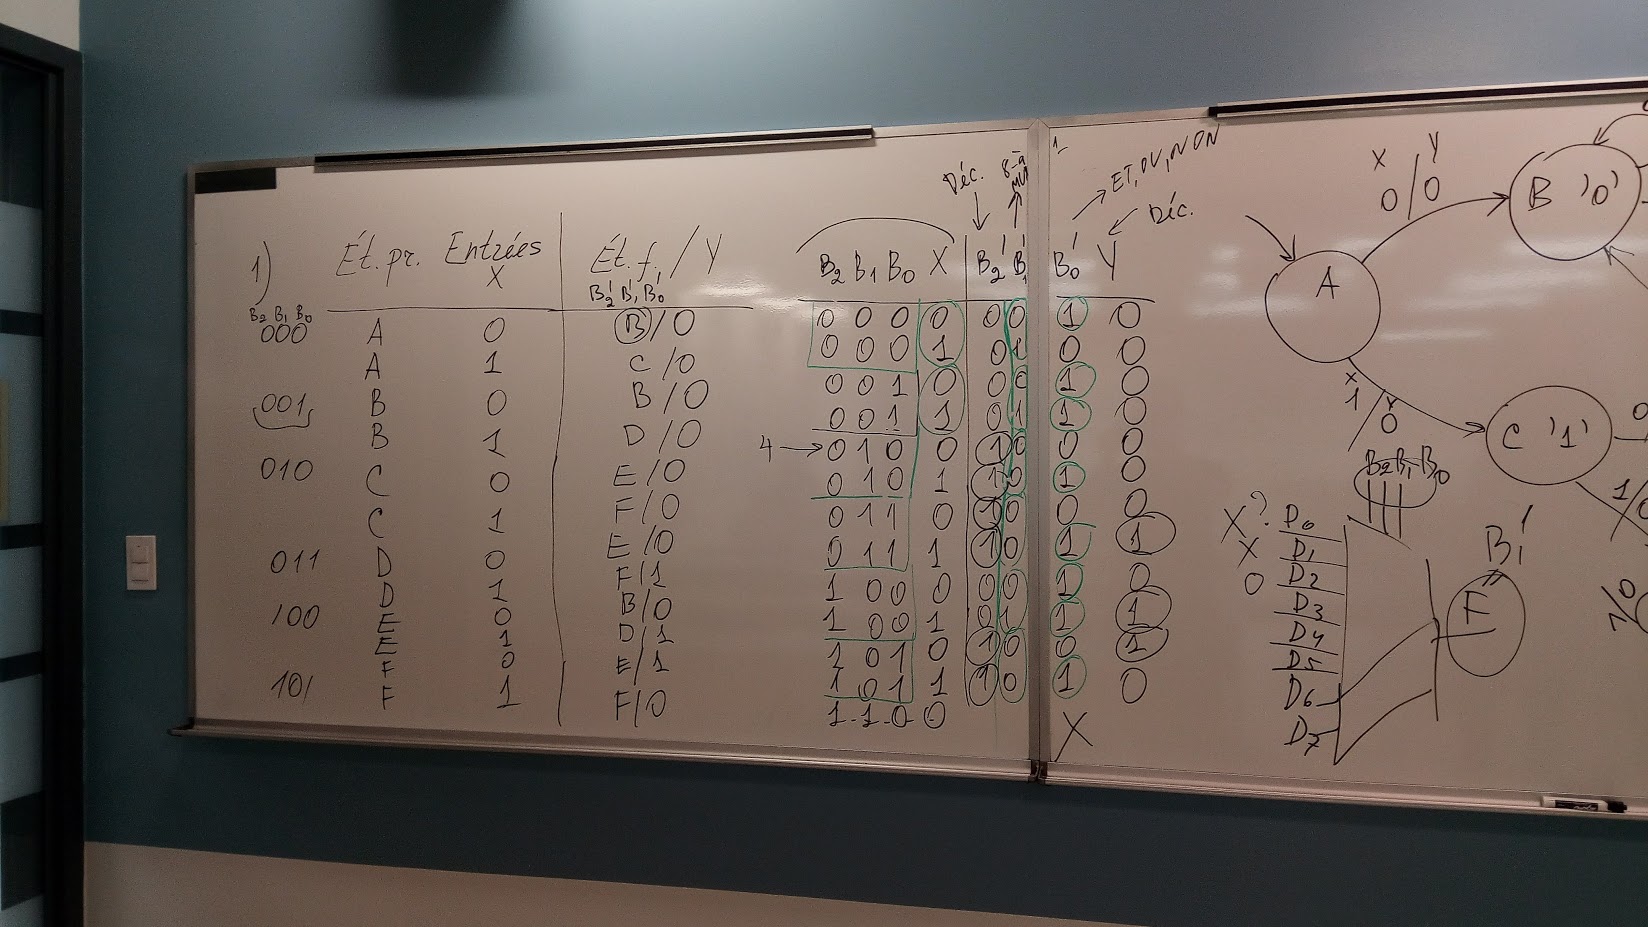 1) Ét. pr. Entrées X Ét. f. / Y
B2 B1 B0 B2' B1' B0'
000 A 0 B/0
A 1 C/0
001 B 0 B/0
B 1 D/0
010 C 0 E/0
C 1 F/0
011 D 0 E/0
D 1 F/1
100 E 0 B/0
E 1 D/1
101 F 0 E/1
F 1 F/0
Déc. 8-à-1 ET, OU, NON
MUX Déc.
B2 B1 B0 X B2' B1' B0' Y
0 0 0 0 0 0 1 0
0 0 0 1 0 1 0 0
0 0 1 0 0 0 1 0
0 0 1 1 0 1 1 0
4 → 0 1 0 0 1 0 0 0
0 1 0 1 1 0 1 0
0 1 1 0 1 0 0 0
0 1 1 1 1 0 1 1
1 0 0 0 0 0 1 0
1 0 0 1 0 1 1 1
1 0 1 0 1 0 0 1
1 0 1 1 1 0 1 0
1 1 0 0 X
X Y
0/0
B '0'
A
X Y
1/0
C '1'
0
1/0
1/0
B2 B1 B0
X? D0
X D1
0 D2
D3
D4
D5
D6
D7
B1'
F